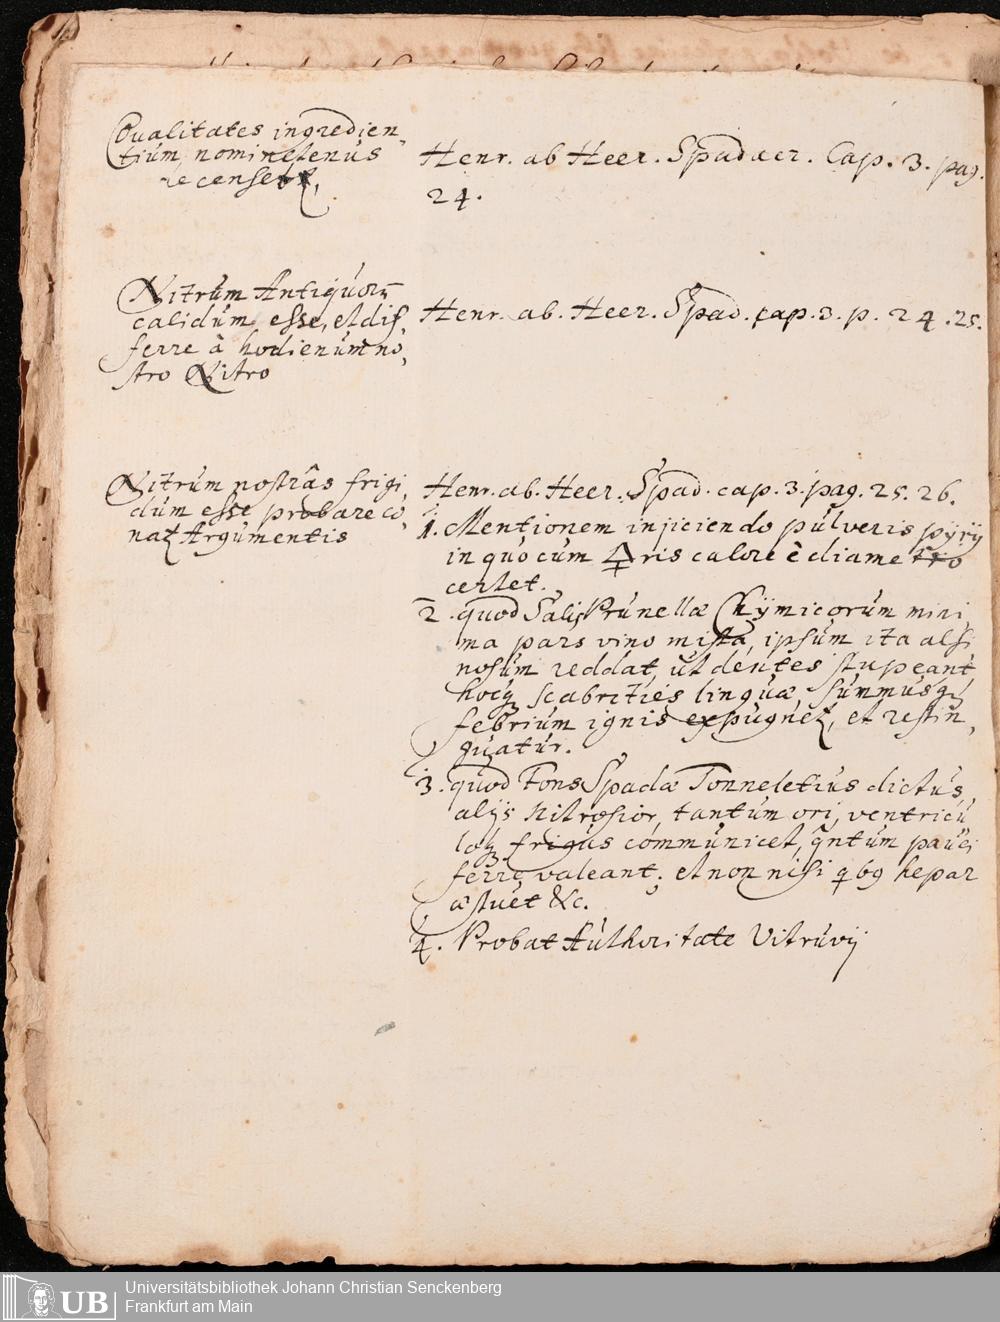 Qualitates ingredien„
tium, nominetenus
recenset.
Henr. ab Heer. Spadacr. Cap. 3. pag.
24.
Nitrum Antiquorũ
calidum esse, et dif„
ferre à hodienum no„
stro Nitro
Henr. ab. Heer. Spad. cap. 3. p. 24. 25.
Nitrum nostrâs frigi„
dum esse probare co„
nat Argumentis
Henr. ab. Heer. Spad. cap. 3. pag. 25. 26.
1. Mentionem injiciendo pulveris pyrij
in quo cum 🜍ris calore è diametro
certet.
2. quod Salis Prunellæ Chÿmicorum mini„
ma pars vino mista, ipsum ita alsi„
nosum reddat, ut dentes stupeant,
hocq; scabrities linguæ, summusq;
febrium ignis expugnet, et restin„
guatur.
3. quod Fons Spadæ Tonneletius dictus,
alijs nitrosior, tantum ori, ventricu„
loq; frigus communicet, q̃ntum pauci
ferre valeant; et non nisi qbg hepar
æstuet &c.
4. Probat Authoritate Vitruvij
Universitätsbibliothek Johann Christian Senckenberg
Frankfurt am Main
UB